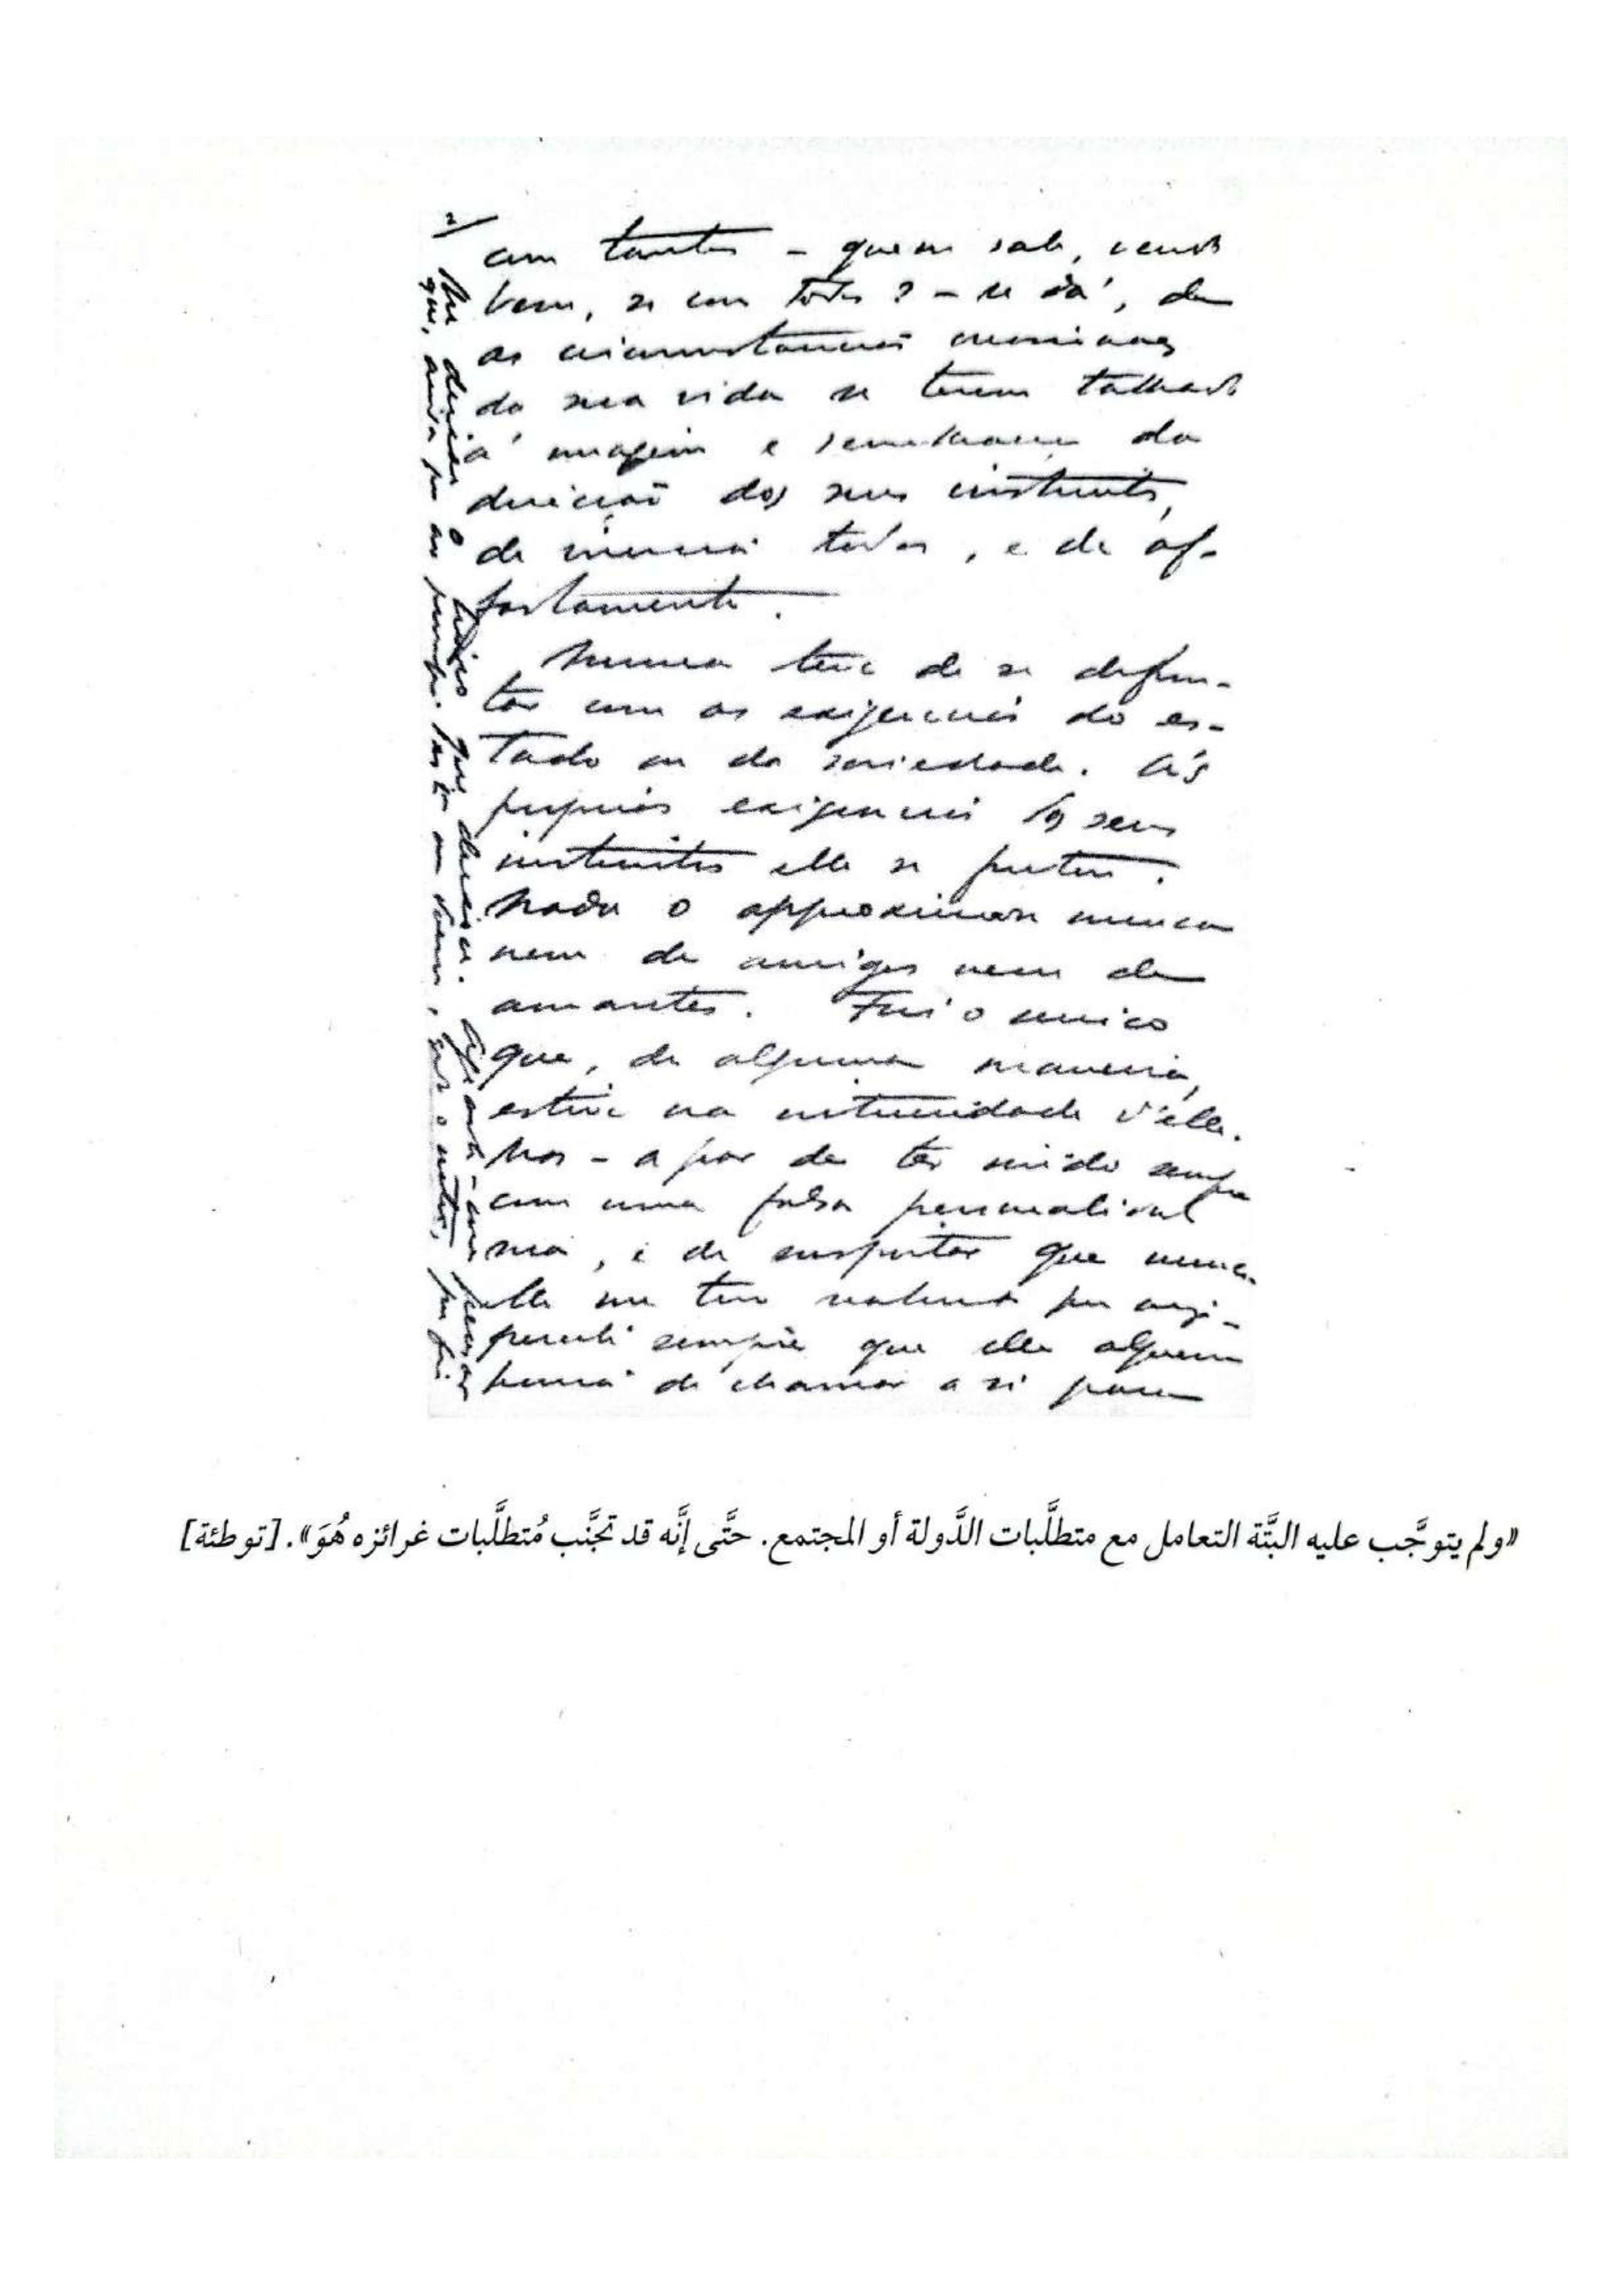 com tantos – quem sabe, vendo
bem, se com todos? – se dá, de
as circumstancias occasionaes
da sua vida se terem talhado
á imagem e semelhança da
direcção dos seus instinctos,
de inercia todos, e de af-
fastamento.
Nunca teve de se defron-
tar com as exigencias do es-
tado ou da sociedade. Ás
proprias exigencias dos seus
instinctos elle se furtou.
Nada o approximou nunca
nem de amigos nem de
amantes. Fui o unico
que, de alguma maneira,
estive na intimidade d'elle.
Mas – a par de ter vivido sempre
com uma falsa personalidade
sua, e de suspeitar que nunca
elle me teve realmente por amigo –
percebi sempre que elle alguem
havia de chamar a si para
lhe deixar o livro que deixou. Agrada-me pensar
que, ainda que ao principio isto me doesse, quando o notei, por fim
«ولم يتوجَّب عليه البتَّة التعامل مع متطلَّبات الدَّولة أو المجتمع. حتَّى إنَّه قد تجنَّب مُتطلَّبات غرائزه هُوَ». [توطئة]